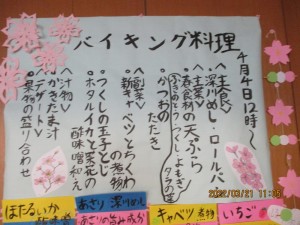 バイキング料理
4月4日12時〜
〈主食〉
深川めし・ロールパン
〈主菜〉
春食材の天ぷら
ふきのとう・つくし・よもぎ
タラの芽
かつおのたたき
〈副菜〉
新キャベツとちくわの煮物
つくしの玉子とじ
ホタルイカと菜花の
酢味噌和え
〈汁物〉
かきたま汁
〈デザート〉
果物の盛り合わせ
ほたるいか
あさり 深川めし
あさりの旨み成分
キャベツ 煮物
いちご
2022/03/21 11:35